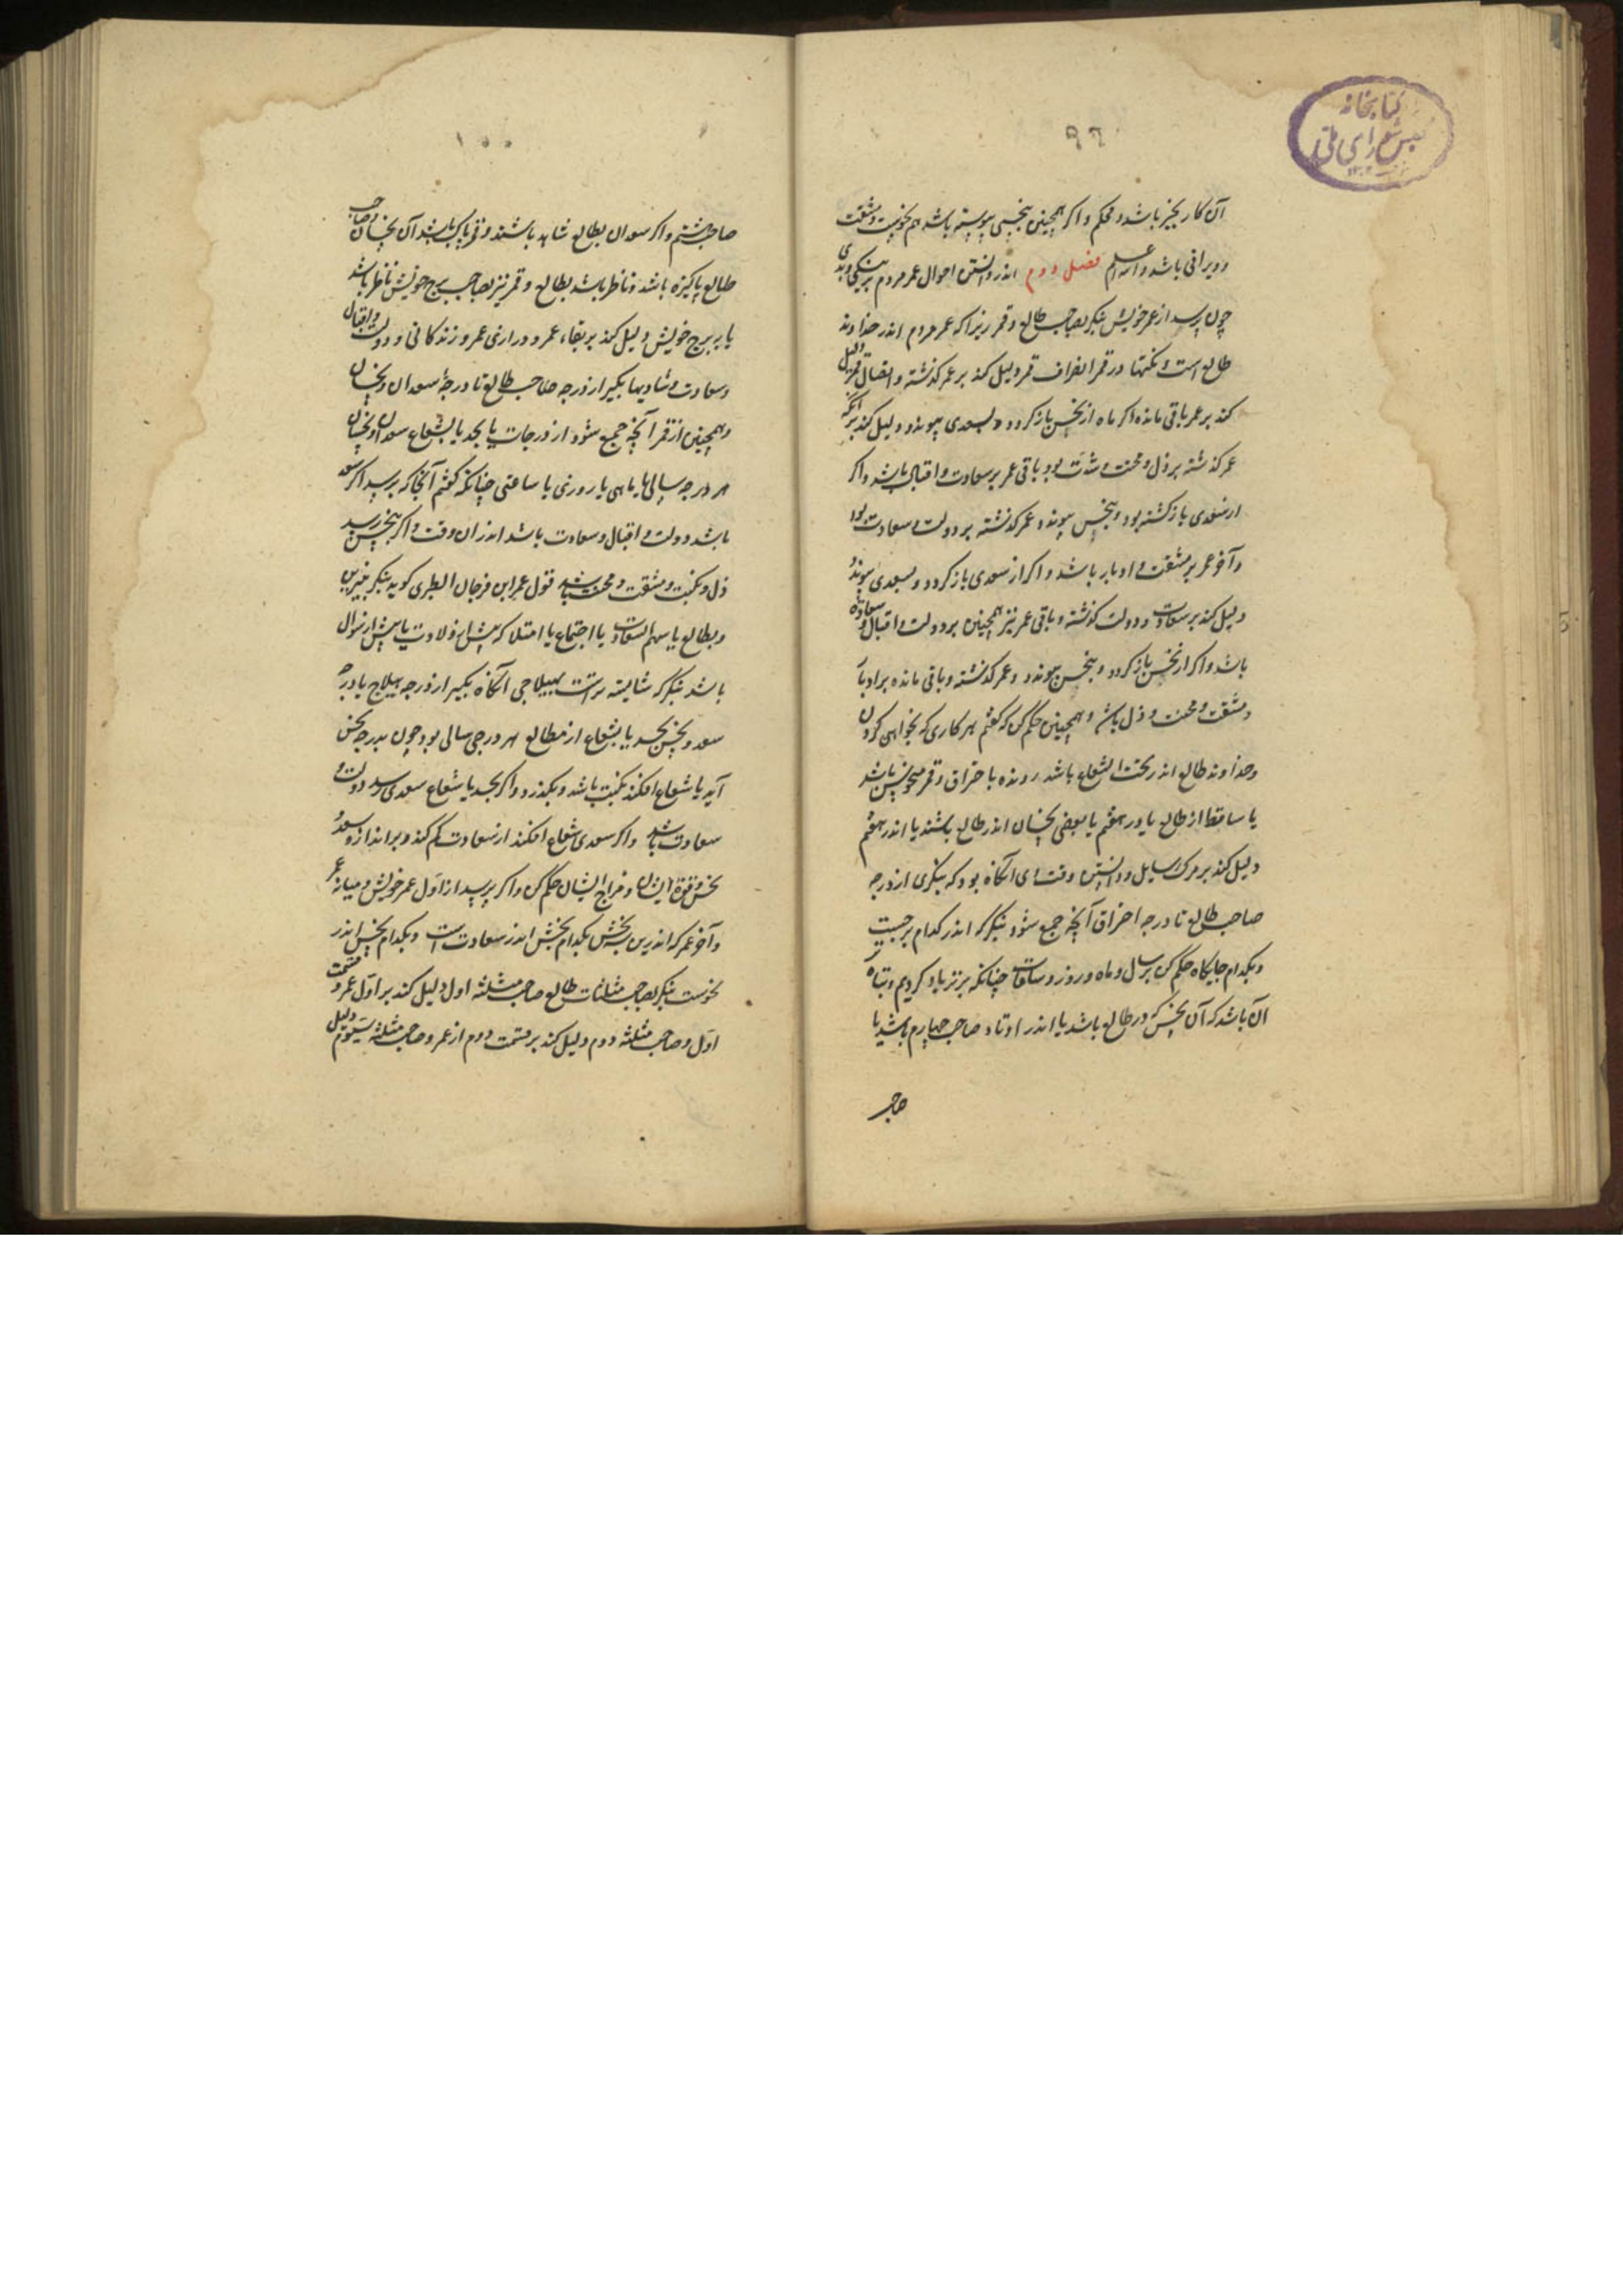 کتابخانه
مجلس شورای ملی
۹۹
آن کار بخیر باشد و محکم و اگر همچنین بنحسی پیوسته باشد هم بخوست و مشقت
و ویرانی باشد والله اعلم فصل دوم اندر دانستن احوال عمر مردم بنیکی و بدی
چون پرسد از عمر خویش بنکر بصاحب طالع و قمر زیرا که عمر مردم اندر خداوند
طالع است و نکتها در قمر انصراف قمر دلیل کند بر عمر کذشته و اتصال قمر دلیل
کند بر عمر باقی مانده اکر ماه از نحس باز کردد و بسعدی پیوندد دلیل کند برآنکه
عمر کذشته بر ذل و محنت و شدت بود باقی عمر بر سعادت و اقبال باشد و اکر
از سعدی بازکشته بود و بنحس پیوندد عمر کذشته بر دولت و سعادت بود
و آخر عمر بر مشقت و ادبار باشد و اکر از سعدی باز کردد و بسعدی پیوندد
دلیل کند بر سعادت و دولت کذشته و باقی عمر نیز همچنین بر دولت و اقبال و سعاده
باشد و اکر از نحس باز کردد و بنحس پیوندد و عمر کذشته و باقی مانده بر ادبار
و مشقت و محنت و ذل باشد و همچنین حکم کن که کفتم هر کاری که بخواهی کردن
و خداوند طالع اندر تحت الشعاع باشد رونده باحتراق و قمر منحوس باشد
یا ساقط از طالع یا در هفتم یا بعضی نحسان اندر طالع باشند یا اندر هفتم
دلیل کند بر مرک سایل و دانستن وقت ای آنکاه بود که بنکری از درجه
صاحب طالع تا درجه احتراق آنچه جمع شود بنکر که اندر کدام برجست
و بکدام جایکاه حکم کن بر سال و ماه و روز و ساعات چنانکه برتر یاد کردیم و تباه
آن باشد که آن نحس در طالع باشد یا اندر اوتاد صاحب چهارم باشد یا
صاحب
۱۰۰
صاحب هشتم و اکر سعدان بطالع شاهد باشند و قمر پاک باشد از آن نحسان و صاحب
طالع پاکیزه باشد و ناظر باشد بطالع و قمر نیز بصاحب برج خویش ناظر باشد
یا ببرج خویش دلیل کند بر بقاء عمر و درازی عمر و زندکانی و دولت و اقبال
و سعادت و شادیها بکیر از درجه صاحب طالع تا درجه سعدان و نحسان
و همچنین از قمر آنچه جمع شود از درجات یا بجد یا بشعاع سعدان و نحسان
هر درجه سالی یا ماهی یا روزی یا ساعتی چنانکه کفتم آنجا که برسد اکر سعد
باشد دولت و اقبال و سعادت باشد اندر آن وقت و اکر بنحس رسد
ذل و نکبت و مشقت و محنت باشد قول عمر ابن فرخان الطبری کوید بنکر بنیرین
و بطالع یا سهم السعادت یا اجتماع یا امتلا که پیش از ولادت یا پیش از سوال
باشد بنکر که شایسته تر است بهیلاجی آنکاه بکیر از درجه هیلاج یا درجه
سعد و نحس بجسد یا بشعاع از مطالع هر درجی سالی بود چون بدرجه نحس
آید یا شعاع افکند نکبت باشد و بکذرد و اکر بجسد یا شعاع سعدی رسد دولت و
سعادت باشد و اکر سعدی شعاع افکند از سعادت کم کند و براندازه سعد و
نحس و قوة ایشان و مزاج ایشان حکم کن و اکر پرسد از اول عمر خویش و میانه
و آخر عمر که اندرین سه بخش بکدام بخش اندر سعادت است و بکدام بخش اندر
نحوست بنکر بصاحب مثلثات طالع صاحب مثلثه اول دلیل کند بر اول عمر و قسمت
اول و صاحب مثلثه دوم دلیل کند بر قسمت دوم از عمر و صاحب مثلثه سیوم دلیل